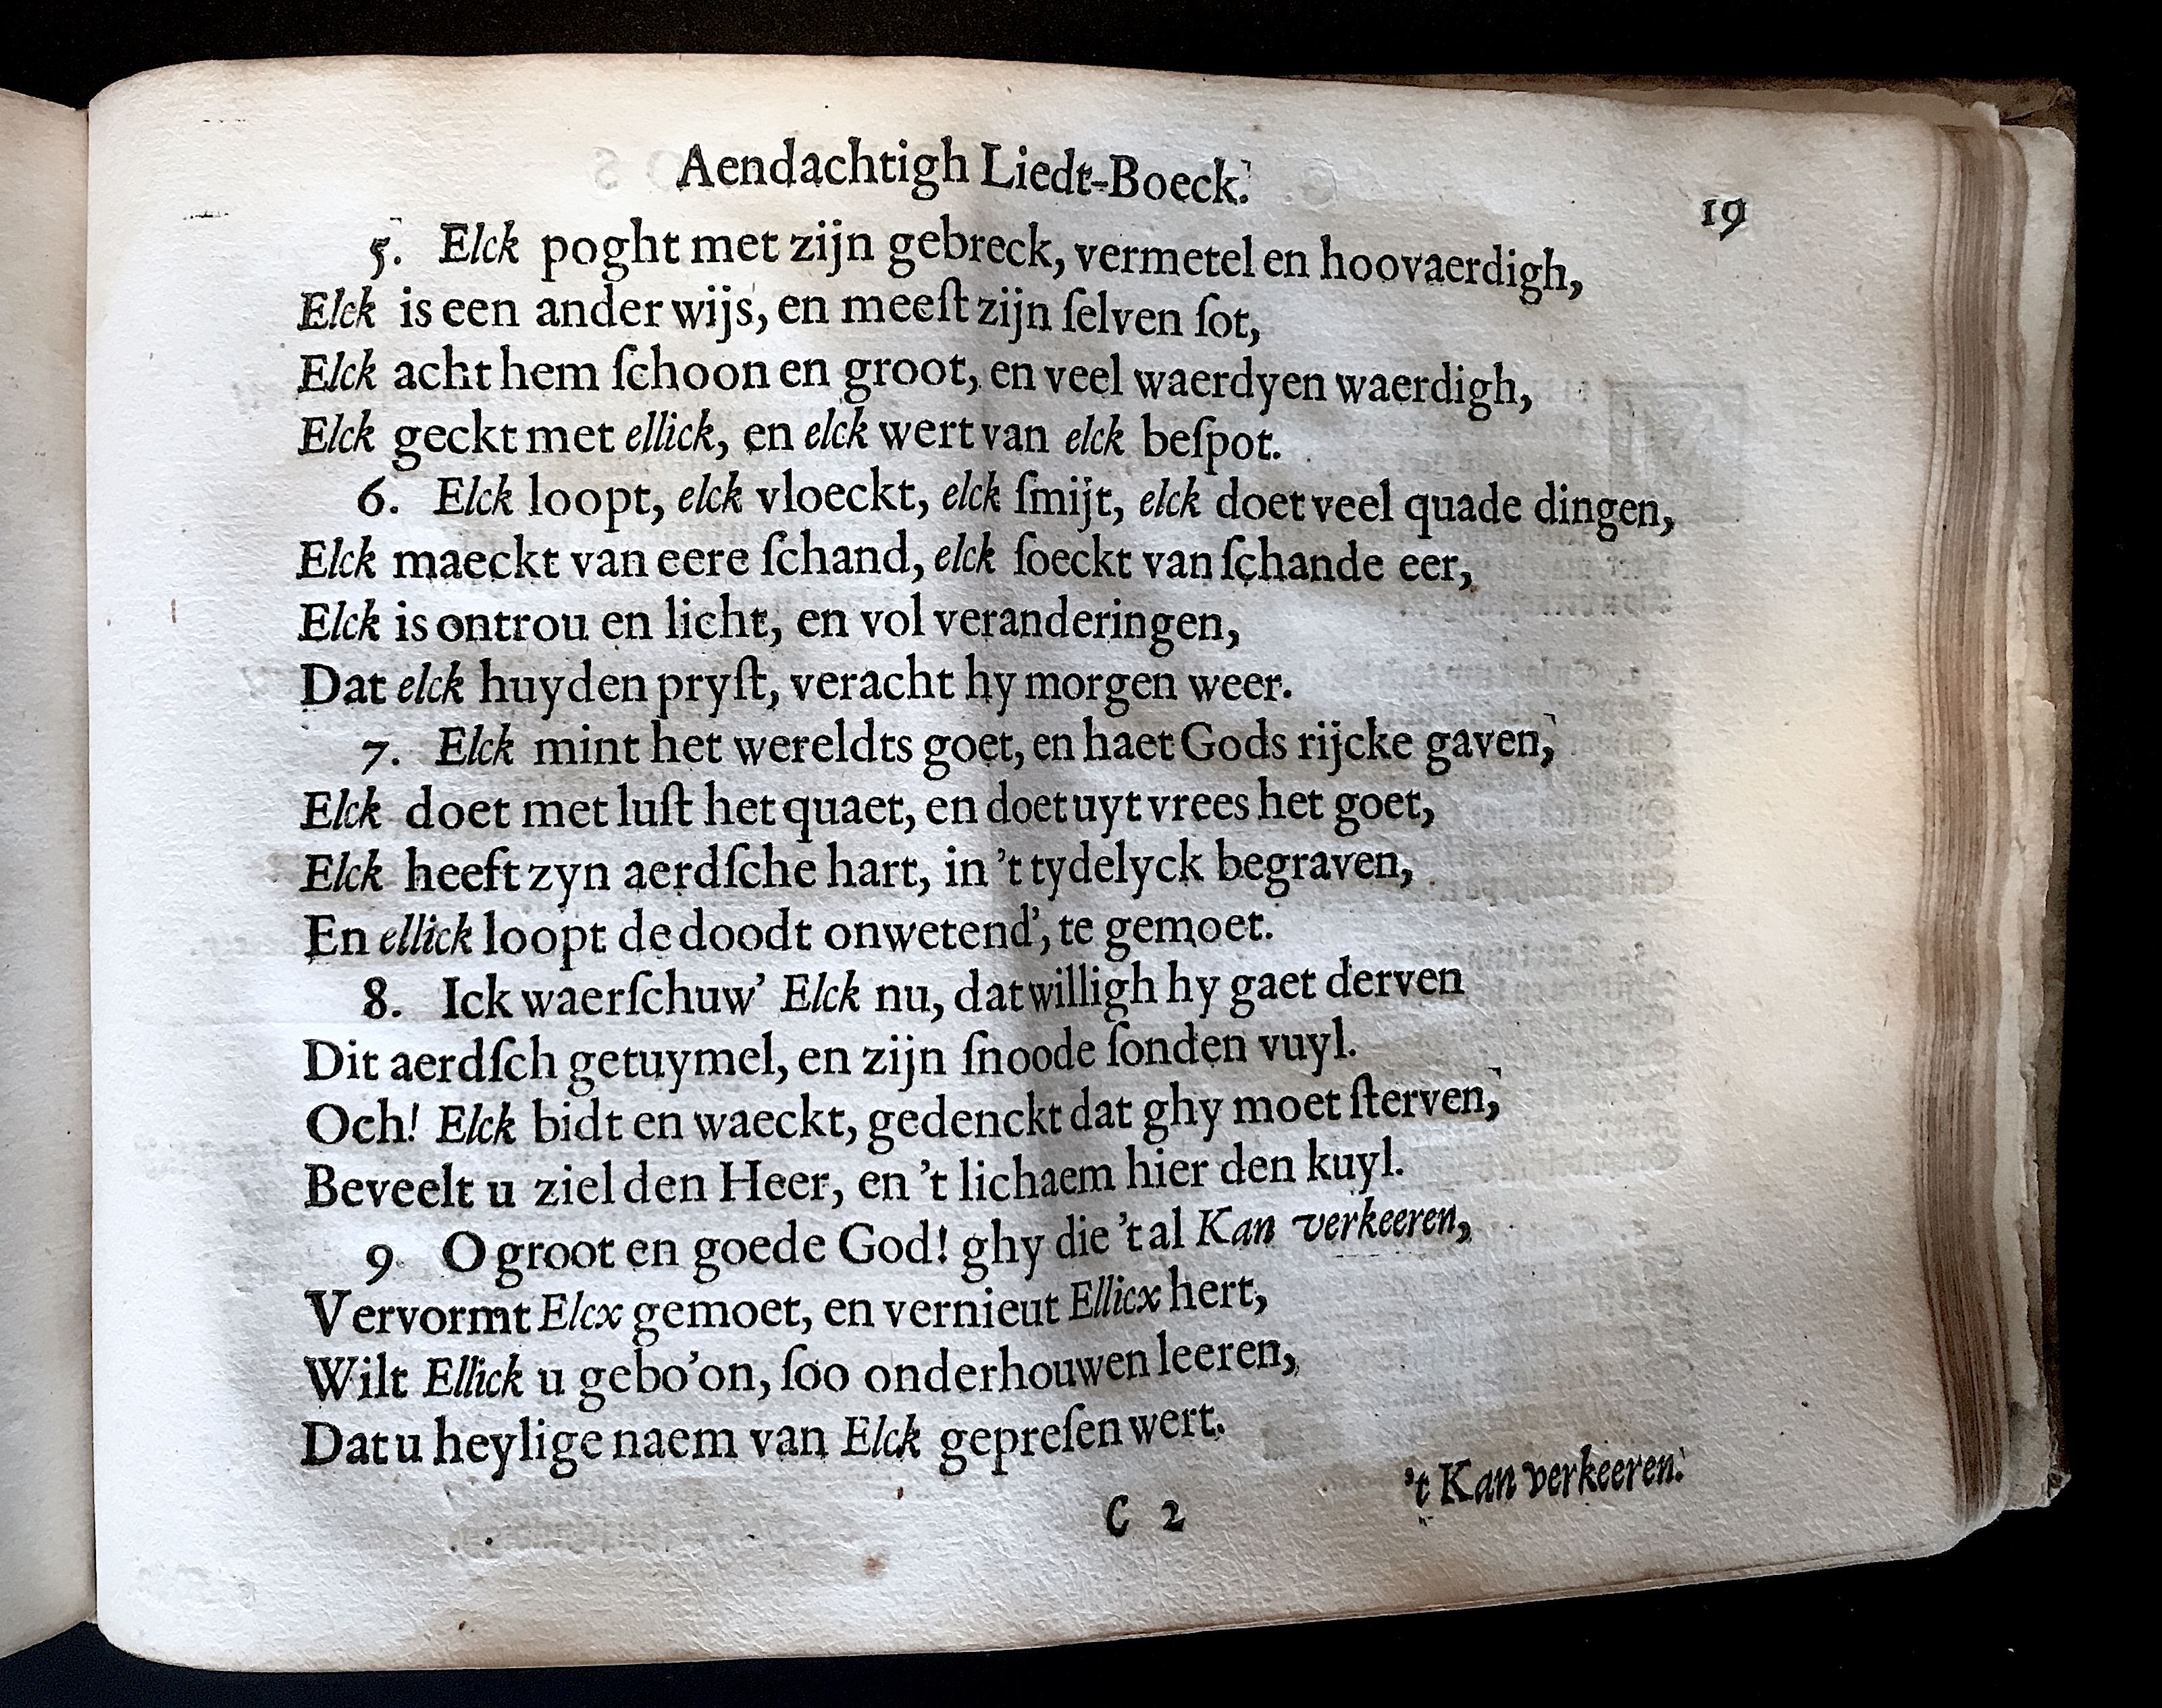 Aendachtigh Liedt-Boeck.
19
5. Elck poght met zijn gebreck, vermetel en hoovaerdigh,
Elck is een ander wijs, en meeſt zijn ſelven ſot,
Elck acht hem ſchoon en groot, en veel waerdyen waerdigh,
Elck geckt met ellick, en elck wert van elck beſpot.
6. Elck loopt, elck vloeckt, elck ſmijt, elck doet veel quade dingen,
Elck maeckt van eere ſchand, elck ſoeckt van ſchande eer,
Elck is ontrou en licht, en vol veranderingen,
Dat elck huyden pryſt, veracht hy morgen weer.
7. Elck mint het wereldts goet, en haet Gods rijcke gaven,
Elck doet met luſt het quaet, en doet uyt vrees het goet,
Elck heeft zyn aerdſche hart, in 't tydelyck begraven,
En ellick loopt de doodt onwetend', te gemoet.
8. Ick waerſchuw' Elck nu, dat willigh hy gaet derven
Dit aerdſch getuymel, en zijn ſnoode ſonden vuyl.
Och! Elck bidt en waeckt, gedenckt dat ghy moet ſterven,
Beveelt u ziel den Heer, en 't lichaem hier den kuyl.
9. O groot en goede God! ghy die 't al Kan verkeeren,
Vervormt Elcx gemoet, en vernieut Ellicx hert,
Wilt Ellick u gebo'on, ſoo onderhouwen leeren,
Dat u heylige naem van Elck gepreſen wert.
't Kan verkeeren.
C 2